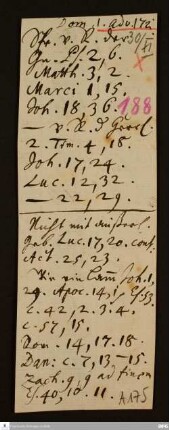 Dom. 1. Adv. 172
30/XI
Spr. v. R. der
Gn. Ps. 2, 6.
Matth. 3, 2.
Marci 1, 15.
Joh. 18, 36. 188
— v. R. d
2. Tim. 4, 18.
Joh. 17, 24.
Luc. 12, 32.
— 22, 29.
Nicht mit äußerl.
Luc. 17, 20. conf.
Act. 25, 23.
ein Lamm Joh. 1,
29. Apoc. 14, 1. Es. 53.
c. 42, 2. 3. 4.
c. 57, 15.
Rom. 14, 17. 18.
Dan: c. 7, 13, -15.
Zach. 9, 9 ad finem
Es. 40, 10. 11. A 175